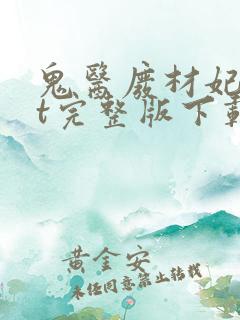 鬼醫廢材妃
t完整版下載
黃金安
未經同意禁止轉載